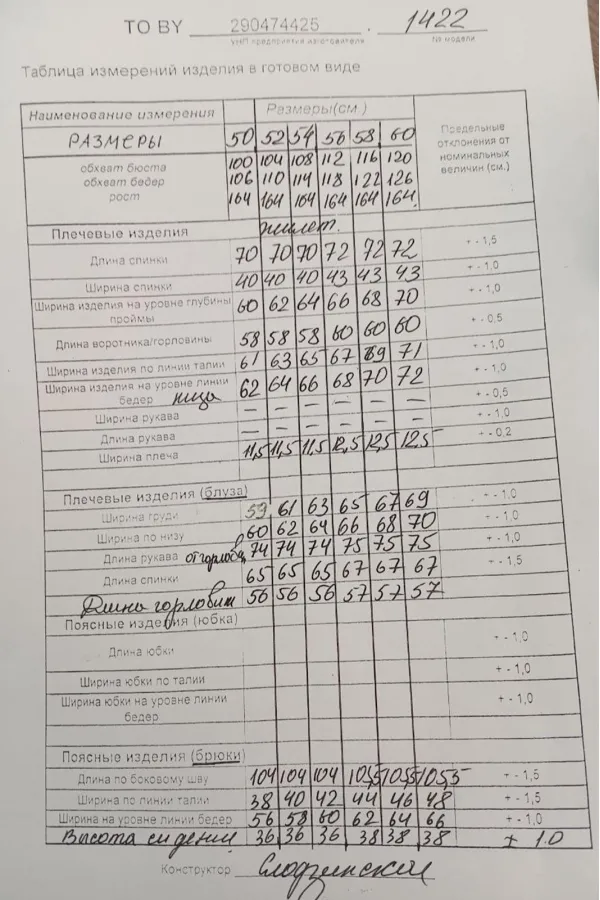 TO BY 290474425 . 1422
УНП предприятия изготовителя № модели
Таблица измерений изделия в готовом виде
Наименование измерения Размеры(см.) Предельные отклонения от номинальных величин (см.)
РАЗМЕРЫ 50 52 54 56 58 60
обхват бюста 100 104 108 112 116 120
обхват бедер 106 110 114 118 122 126
рост 164 164 164 164 164 164
Плечевые изделия жилет.
Длина спинки 70 70 70 72 72 72 + - 1,5
Ширина спинки 40 40 40 43 43 43 + - 1,0
Ширина изделия на уровне глубины проймы 60 62 64 66 68 70 + - 1,0
Длина воротника/горловины 58 58 58 60 60 60 + - 0,5
Ширина изделия по линии талии 61 63 65 67 69 71 + - 1,0
Ширина изделия на уровне линии бедер низа 62 64 66 68 70 72 + - 1,0
Ширина рукава – – – – – – + - 0,5
Длина рукава – – – – – – + - 1,0
Ширина плеча 11,5 11,5 11,5 12,5 12,5 12,5 + - 0,2
Плечевые изделия (блуза)
Ширина груди 59 61 63 65 67 69 + - 1,0
Ширина по низу 60 62 64 66 68 70 + - 1,0
Длина рукава от горлов. 74 74 74 75 75 75 + - 1,0
Длина спинки 65 65 65 67 67 67 + - 1,5
Длина горловин 56 56 56 57 57 57
Поясные изделия (юбка)
Длина юбки + - 1,0
Ширина юбки по талии + - 1,0
Ширина юбки на уровне линии бедер + - 1,0
Поясные изделия (брюки)
Длина по боковому шву 104 104 104 105,5 105,5 105,5 + - 1,5
Ширина по линии талии 38 40 42 44 46 48 + - 1,5
Ширина на уровне линии бедер 56 58 60 62 64 66 + - 1,0
Высота сидения 36 36 36 38 38 38 ± 1.0
Конструктор